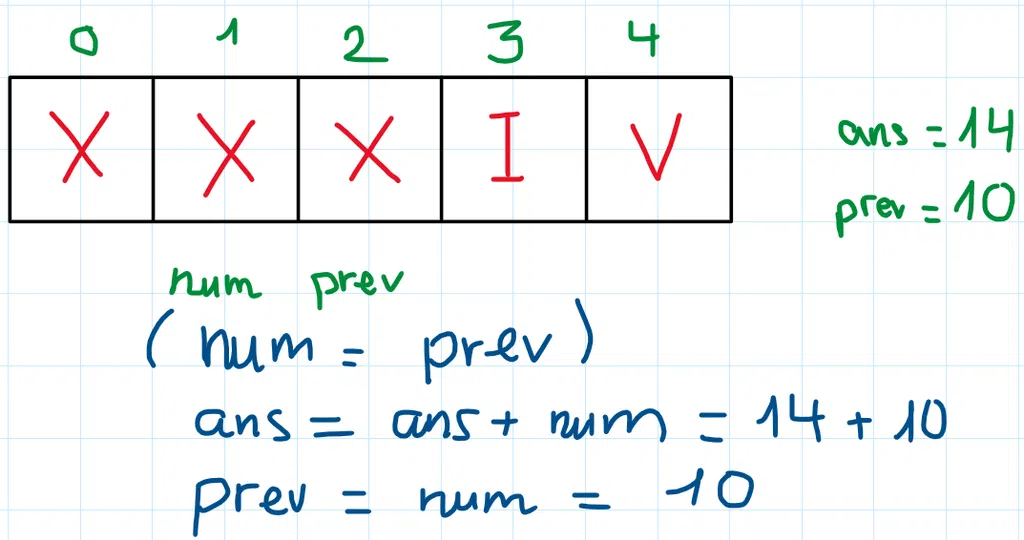 0 1 2 3 4
X X X I V
ans = 14
prev = 10
num prev
( num = prev )
ans = ans + num = 14 + 10
prev = num = 10